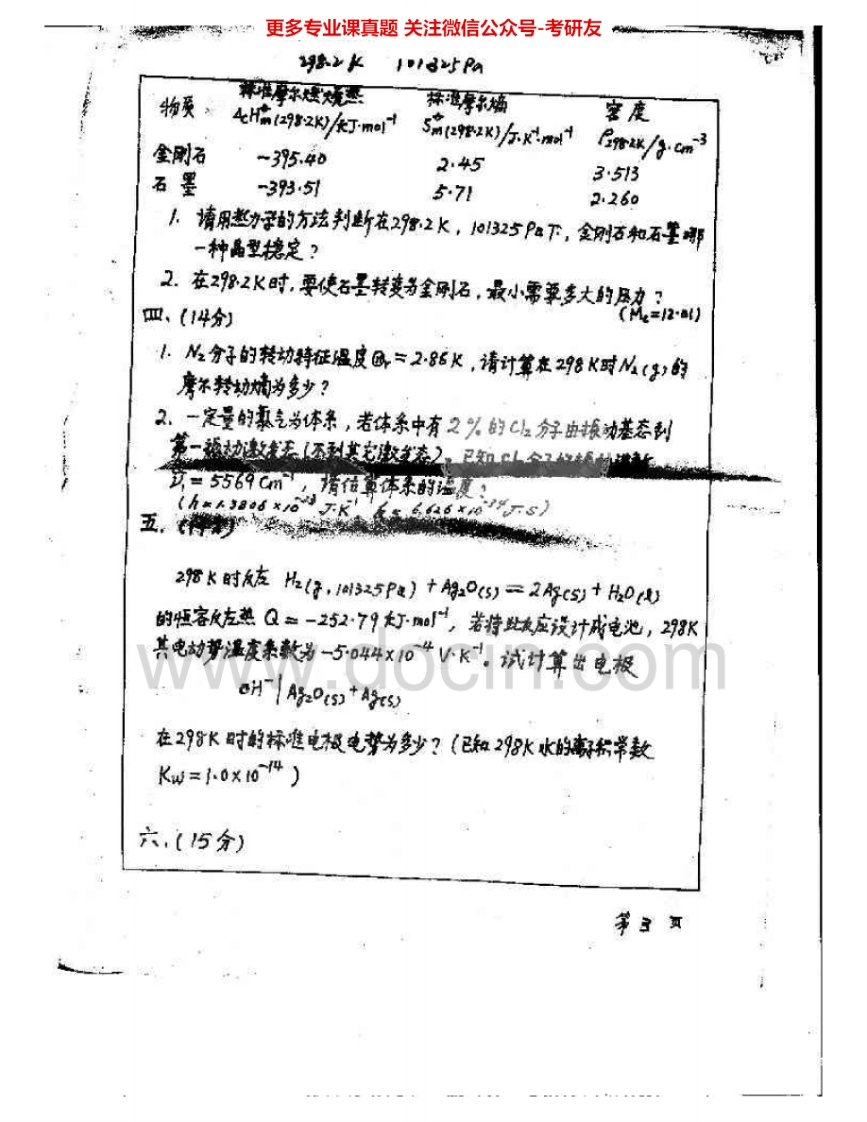 更多专业课真题 关注微信公众号-考研友
298.2K 101325Pa
物质 标准摩尔燃烧热 标准摩尔熵 密度
ΔcH°m(298.2K)/kJ·mol⁻¹ S°m(298.2K)/J·K⁻¹·mol⁻¹ ρ298.2K/g·cm⁻³
金刚石 -395.40 2.45 3.513
石墨 -393.51 5.71 2.260
1. 请用热力学的方法判断在298.2K,101325Pa下,金刚石和石墨哪
一种晶型稳定?
2. 在298.2K时,要使石墨转变为金刚石,最小需要多大的压力?
(Mc=12.01)
四、(14分)
1. N₂分子的转动特征温度Θr=2.86K,请计算在298K时N₂(g)的
摩尔转动熵为多少?
2. 一定量的氯气为体系,若体系中有2%的Cl₂分子由振动基态到
第一振动激发态(不到其它激发态)。已知Cl₂分子的振动
ν̃₁=5569cm⁻¹,请估算体系的温度?
(k=1.3806×10⁻²³ J·K⁻¹ h=6.626×10⁻³⁴J·S)
五、
298K时反应 H₂(g,101325Pa)+Ag₂O(s)=2Ag(s)+H₂O(l)
的恒容反应热 Q=-252.79kJ·mol⁻¹,若将此反应设计成电池,298K
其电动势温度系数为-5.044×10⁻⁴V·K⁻¹。试计算出电极
OH⁻|Ag₂O(s)+Ag(s)
在298K时的标准电极电势为多少?(已知298K水的离子积常数
Kw=1.0×10⁻¹⁴)
六、(15分)
第3页
www.docin.com